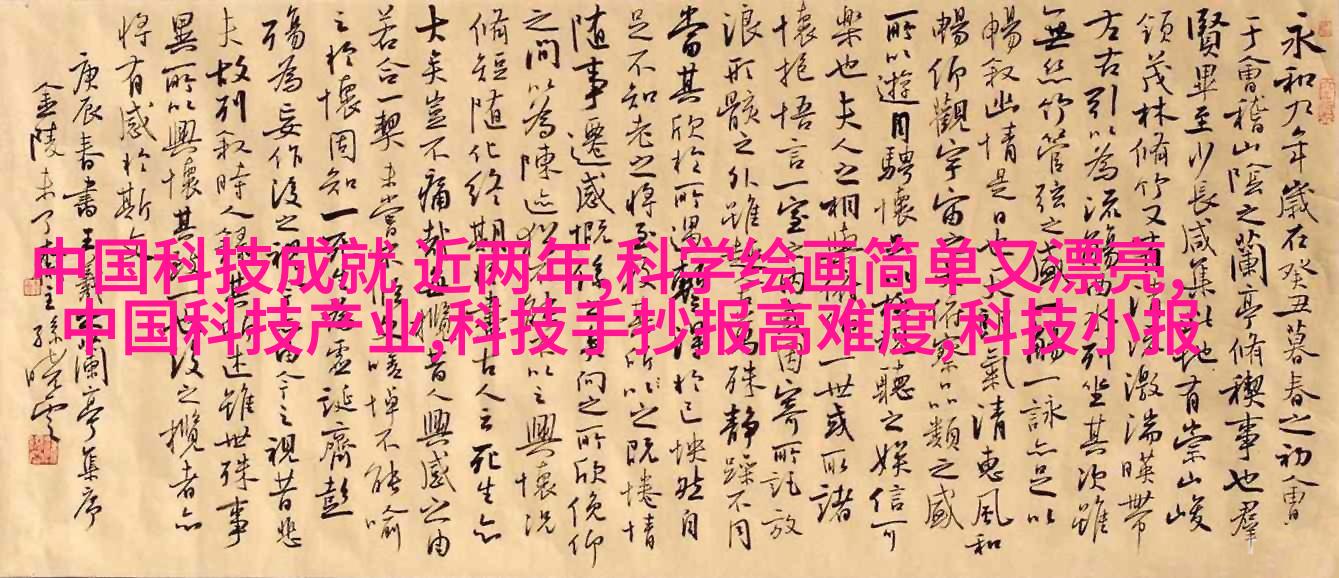 中国科技成就 近两年,科学绘画简单又漂亮,
中国科技产业,科技手抄报高难度,科技小报
永和九年歲在癸丑暮春之初會
于會稽山陰之蘭亭脩稧事也羣
賢畢至少長咸集此地有崇山峻
領茂林脩竹又有清流激湍暎帶
左右引以為流觴曲水列坐其次雖
無絲竹管弦之盛一觴一詠亦足以
暢敘幽情是日也天朗氣清惠風和
暢仰觀宇宙之大俯察品類之盛
所以遊目騁懷足以極視聽之娛信可
樂也夫人之相與俯仰一世或取諸
懷抱悟言一室之內或因寄所託放
浪形骸之外雖趣舍萬殊靜躁不同
當其欣於所遇蹔得於己怏然自
足不知老之將至及其所之既惓情
隨事遷感慨係之矣向之所欣俛仰
之間以為陳迹猶不能不以之興懷況
脩短隨化終期於盡古人云死生亦
大矣豈不痛哉每攬昔人興感之由
若合一契未嘗不臨文嗟悼不能喻
之於懷固知一死生為虛誕齊彭
殤為妄作後之視今亦由今之視昔悲
夫故列敘時人錄其所述雖世殊事
異所以興懷其致一也後之攬者亦
將有感於斯文
庚辰春書王羲之蘭亭集序
金陵未了 孫曉雲